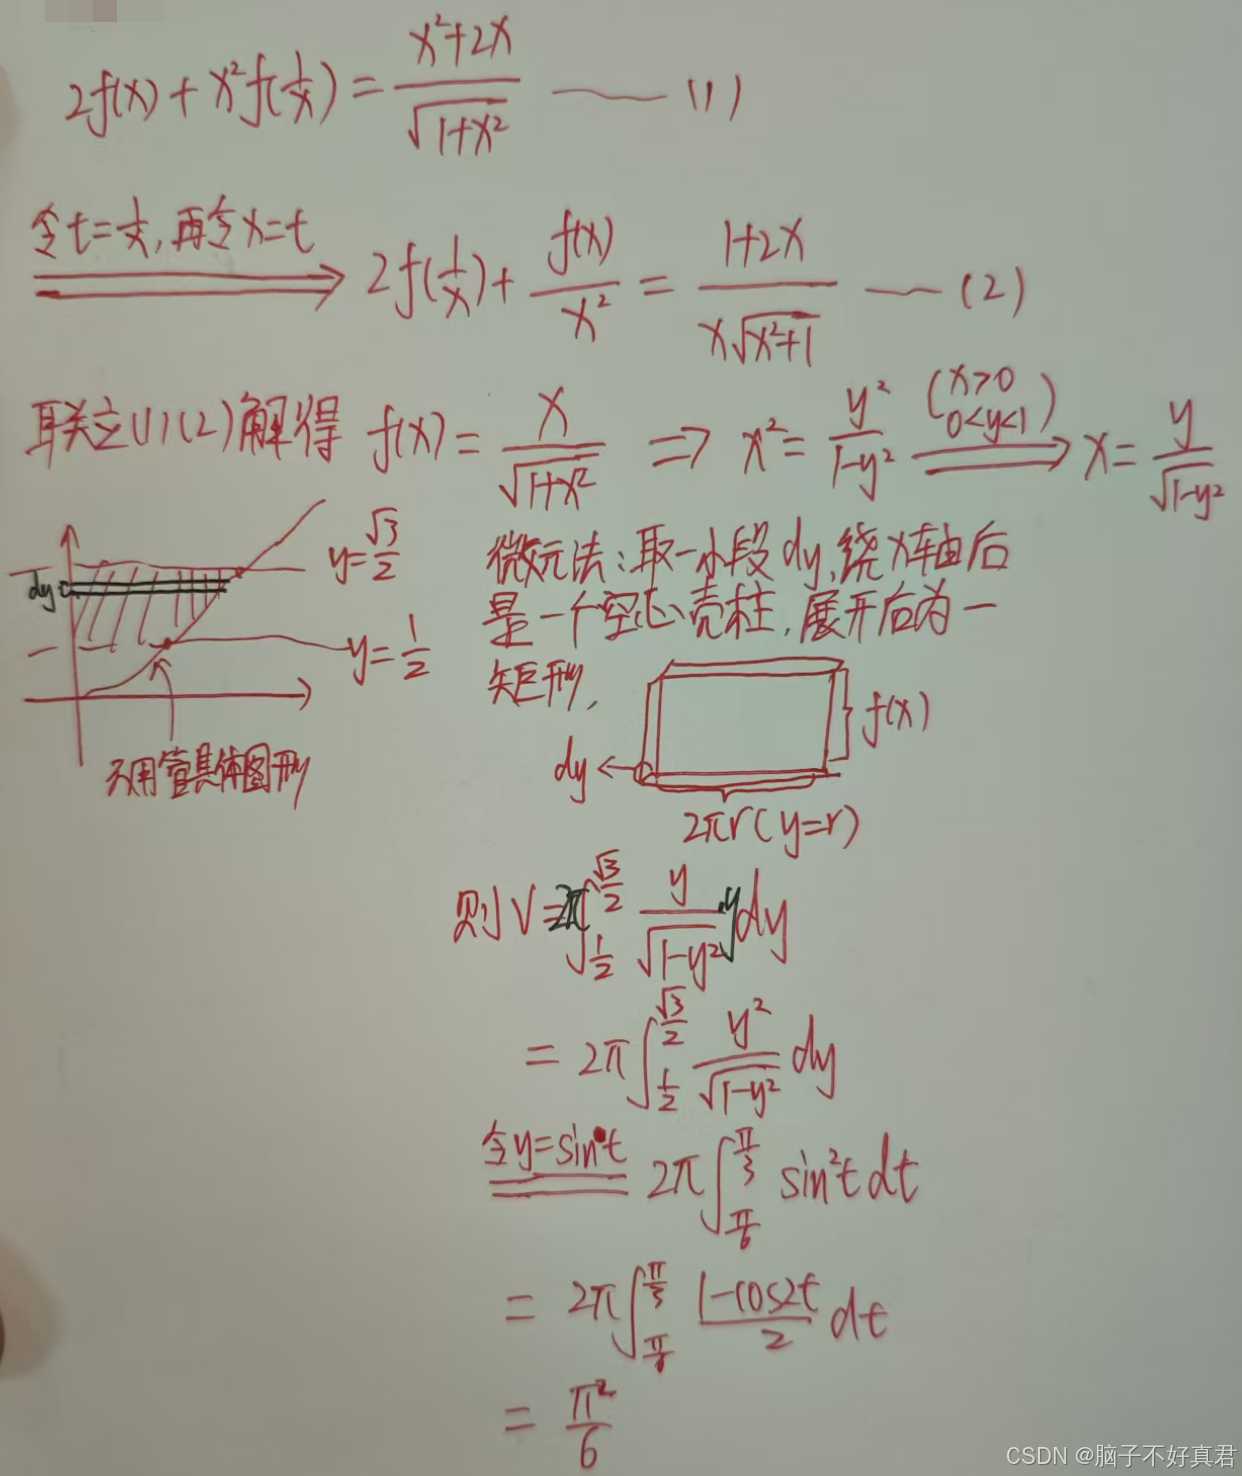 2f(x) + x²f(1/x) = (x²+2x)/√(1+x²) —— (1)
令t=1/x,再令x=t 2f(1/x) + f(x)/x² = (1+2x)/(x√(x²+1)) —— (2)
联立(1)(2)解得 f(x) = x/√(1+x²) ⇒ x² = y²/(1-y²) (x>0 0<y<1) ⇒ x = y/√(1-y²)
y=√3/2
dy
y=1/2
不用管具体图形
微元法:取一小段dy,绕x轴后
是一个空心壳柱,展开后为一
矩形,
f(x)
dy ←
2πr(y=r)
则 V=2π∫_{1/2}^{√3/2} y/√(1-y²) · y dy
= 2π∫_{1/2}^{√3/2} y²/√(1-y²) dy
令y=sint 2π∫_{π/6}^{π/3} sin²t dt
= 2π∫_{π/6}^{π/3} (1-cos2t)/2 dt
= π²/6
CSDN @脑子不好真君